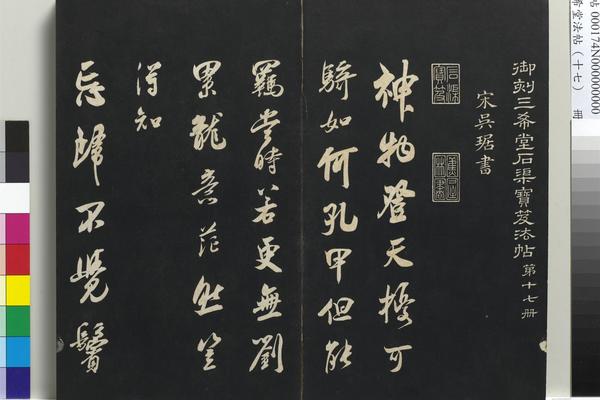 帖 000174N000000000
希堂法帖（十七） 冊
御刻三希堂石渠寶笈法帖第十七冊
宋吳琚書
石渠寶笈
神物登天擾可
騎如何孔甲但能
羈當時若更無劉
累龍意茫然豈
得知
忘歸不覺鬢